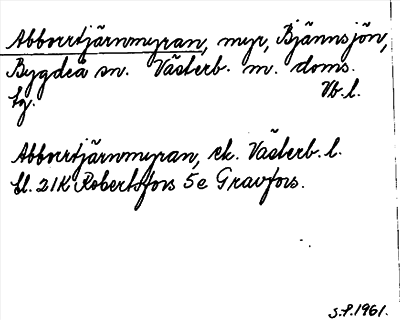 Abborrtjärnmyran, myr, Bjännsjön,
Bygdeå sn. Västerb. m. doms.
tg. Vb. l.
Abborrtjärnmyran, ek. Västerb. l.
bl. 21K Robertsfors 5e Gravfors.
S.P. 1961.